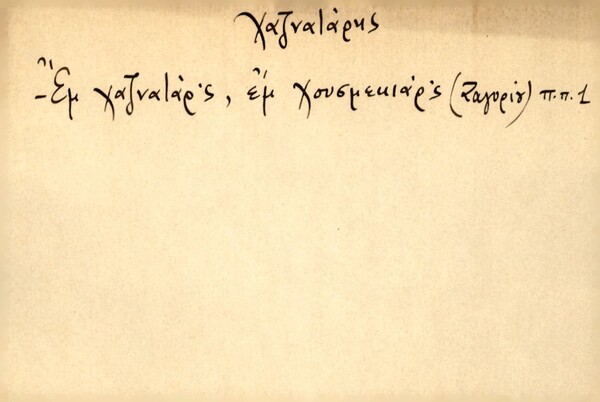 χαζναιάρης
-Ἔμ χαζναιάρ'ς, ἔμ χουσμεκιάρ'ς (Ζαγορίου) π.π. 1